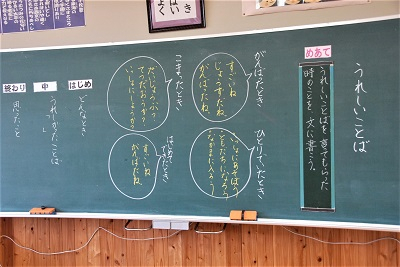 うれしいことば
めあて
うれしいことばを言ってもらった
時のことを 文に書こう。
がんばったとき
すごいね
じょうずだね。
がんばったね。
ひとりでいたとき
いっしょにあそぼう
ともだちになろう
なかまに入ろう
こまったとき
だいじょうぶ?
てつだおうか?
いっしょにしようか
はじめてできたとき
すごいね。
がんばったね。
はじめ
どんなとき
中
うれしかったことば
終わり
思ったこと